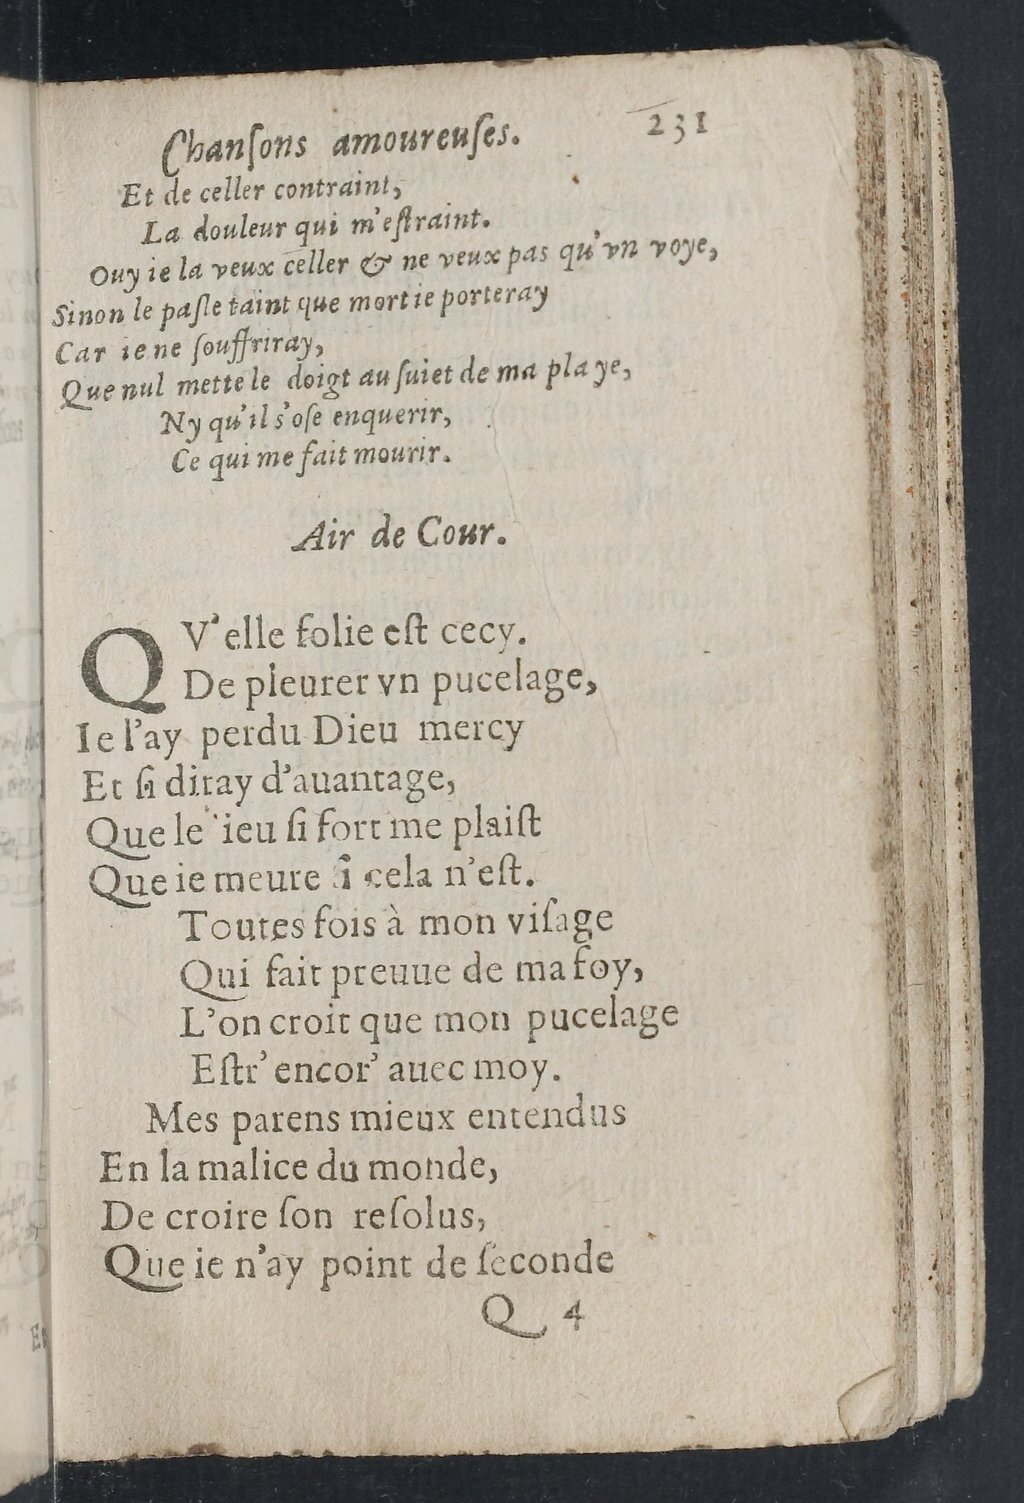 Chanſons amoureuſes. 231
Et de celler contraint,
La douleur qui m'eſtraint.
Ouy ie la veux celler & ne veux pas qu'vn voye,
Sinon le paſle taint que mort ie porteray
Car ie ne ſouffriray,
Que nul mette le doigt au ſuiet de ma playe,
Ny qu'il s'oſe enquerir,
Ce qui me fait mourir.
Air de Cour.
QV'elle folie eſt cecy.
De pleurer vn pucelage,
Ie l'ay perdu Dieu mercy
Et ſi diray d'auantage,
Que le ieu ſi fort me plaiſt
Que ie meure ſi cela n'eſt.
Toutes fois à mon viſage
Qui fait preuue de ma foy,
L'on croit que mon pucelage
Eſtr' encor' auec moy.
Mes parens mieux entendus
En la malice du monde,
De croire ſon reſolus,
Que ie n'ay point de ſeconde
Q 4